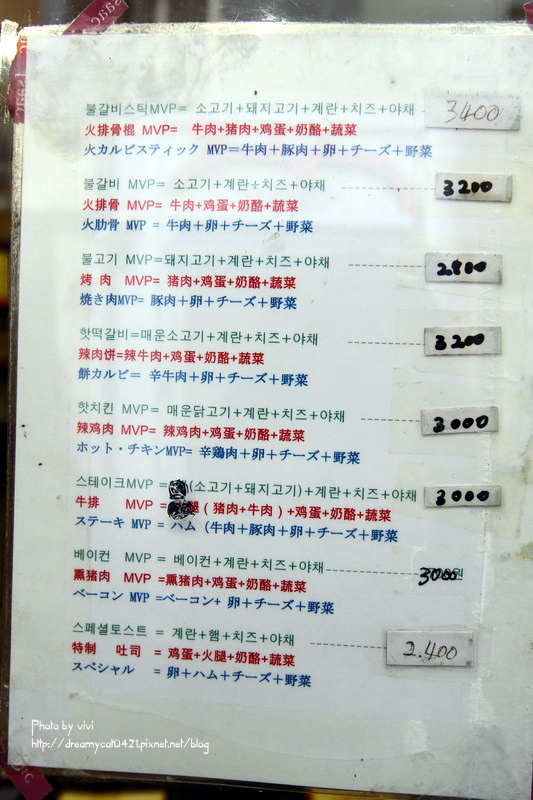 불갈비스틱MVP= 소고기+돼지고기+계란+치즈+야채 3400
火排骨棍 MVP= 牛肉+猪肉+鸡蛋+奶酪+蔬菜
火カルビスティック MVP=牛肉+豚肉+卵+チーズ+野菜
불갈비 MVP= 소고기+계란+치즈+야채 3200
火排骨 MVP= 牛肉+鸡蛋+奶酪+蔬菜
火肋骨 MVP = 牛肉+卵+チーズ+野菜
불고기 MVP=돼지고기+계란+치즈+야채 2800
烤 肉 MVP= 猪肉+鸡蛋+奶酪+蔬菜
焼き肉MVP= 豚肉+卵+チーズ+野菜
핫떡갈비=매운소고기+계란+치즈+야채 3200
辣肉饼=辣牛肉+鸡蛋+奶酪+蔬菜
餅カルビ= 辛牛肉+卵+チーズ+野菜
핫치킨 MVP= 매운닭고기+계란+치즈+야채 3000
辣鸡肉 MVP= 辣鸡肉+鸡蛋+奶酪+蔬菜
ホット・チキンMVP= 辛鶏肉+卵+チーズ+野菜
스테이크MVP = (소고기+돼지고기)+계란+치즈+야채 3000
牛排 MVP = 腿(猪肉+牛肉)+鸡蛋+奶酪+蔬菜
ステーキ MVP = ハム (牛肉+豚肉+卵+チーズ+野菜
베이컨 MVP = 베이컨+계란+치즈+야채 3000원
熏猪肉 MVP =熏猪肉+鸡蛋+奶酪+蔬菜
ベーコン MVP =ベーコン+ 卵+チーズ+野菜
스페셜토스트 = 계란+햄+치즈+야채 2.400
特制 吐司 = 鸡蛋+火腿+奶酪+蔬菜
スペシャル = 卵+ハム+チーズ+野菜
Photo by vivi
http://dreamycat0421.pixnet.net/blog